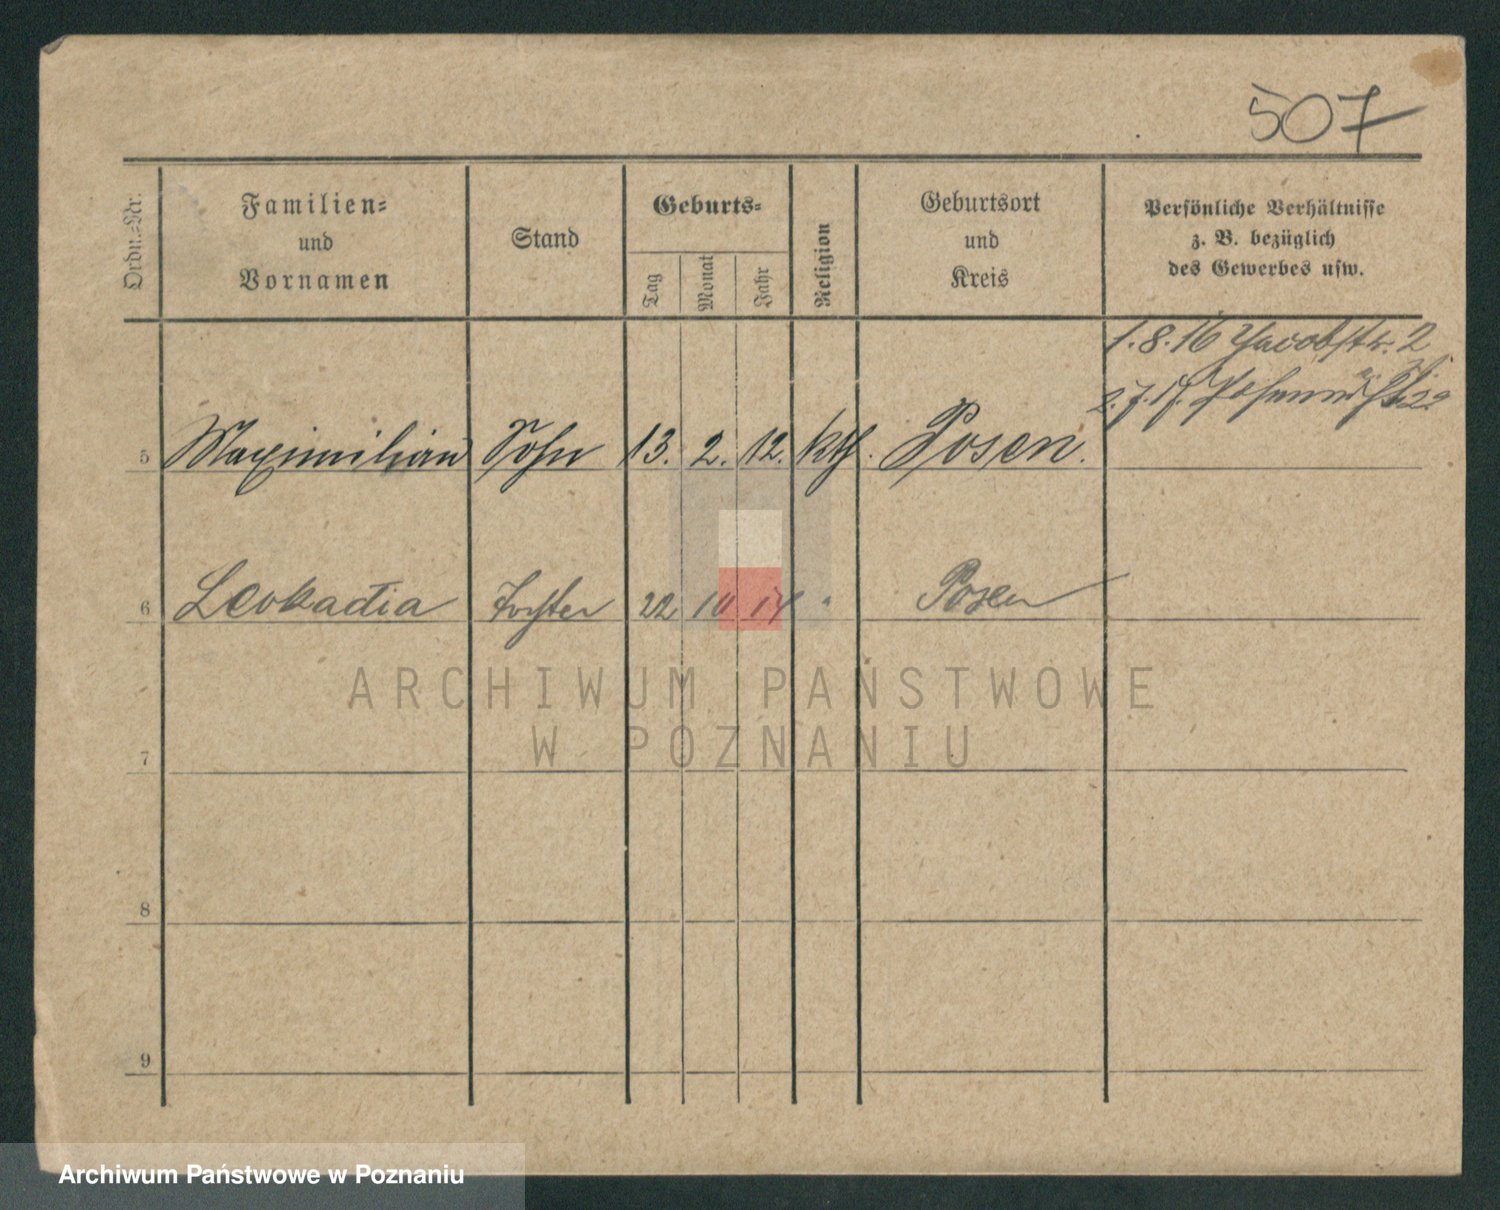 507
Ordn.-Nr.
Familien-
und
Vornamen
Stand
Geburts-
Tag
Monat
Jahr
Religion
Geburtsort
und
Kreis
Persönliche Verhältnisse
z. B. bezüglich
des Gewerbes usw.
1.8.16 Jacobstr. 2
2.7.17.
5 Maximilian Sohn 13. 2. 12. kth. Posen.
6 Leokadia Tochter 22 10 14 " Posen
7
8
9
ARCHIWUM PAŃSTWOWE
W POZNANIU
Archiwum Państwowe w Poznaniu